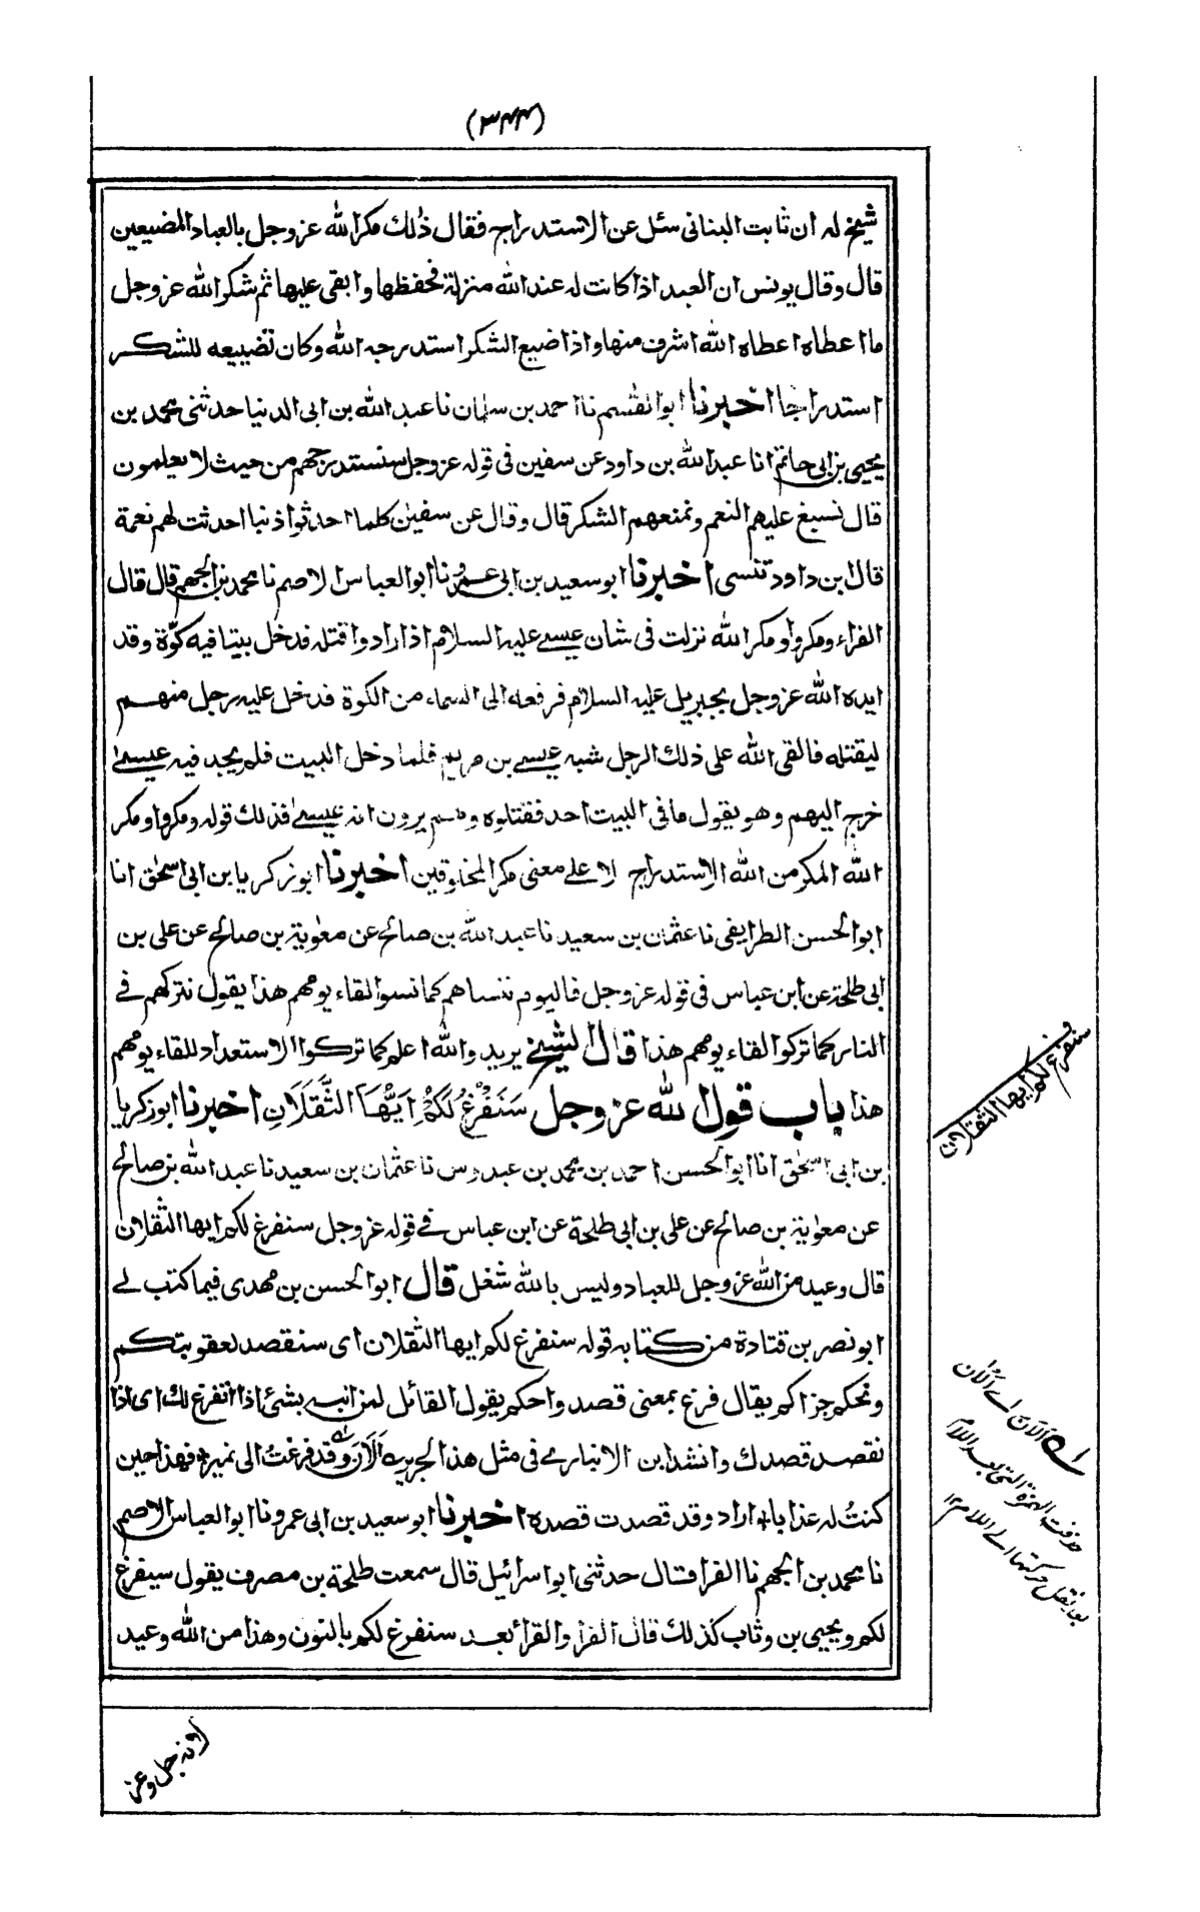 (٣٤٤)
شيخ له ان ثابت البناني سئل عن الاستدراج فقال ذلك مكر الله عز وجل بالعباد المضيعين
قال وقال يونس ان العبد اذا كانت له عند الله منزلة فحفظها وابقى عليها ثم شكر الله عز وجل
ما اعطاه اعطاه الله اشرف منها واذا ضيع الشكر استدرجه الله وكان تضييعه للشكر
استدراجا اخبرنا ابو القسم نا احمد بن سلمان نا عبد الله بن ابى الدنيا حدثنى محمد بن
يحيى بن ابى حاتم انا عبد الله بن داود عن سفين فى قوله عز وجل سنستدرجهم من حيث لا يعلمون
قال نسبغ عليهم النعم ونمنعهم الشكر قال وقال عن سفين كلما احدثوا ذنبا احدثت لهم نعمة
قال ابن داود تنسى اخبرنا ابو سعيد بن ابى عمرو نا ابو العباس الاصم نا محمد بن الجهم قال قال
الفراء ومكروا ومكر الله نزلت فى شان عيسے عليه السلام اذ ارادوا قتله فدخل بيتا فيه كوّة وقد
ايده الله عز وجل بجبريل عليه السلام فرفعه الى السماء من الكوة فدخل عليه رجل منهم
ليقتله فالقى الله على ذلك الرجل شبه عيسے بن مريم فلما دخل البيت فلم يجد فيه عيسے
خرج اليهم وهو يقول ما فى البيت احد فقتلوه وهم يرون انه عيسے فذلك قوله ومكروا ومكر
الله المكر من الله الاستدراج لا علے معنى مكر المخلوقين اخبرنا ابو زكريا بن ابى اسحٰق انا
ابو الحسن الطرايفى نا عثمان بن سعيد نا عبد الله بن صالح عن معٰوية بن صالح عن على بن
ابى طلحة عن ابن عباس فى قوله عز وجل فاليوم ننساهم كما نسوا لقاء يومهم هذا يقول نتركهم فے
النار كما تركوا لقاء يومهم هذا قال الشيخ يريد والله اعلم كما تركوا الاستعداد للقاء يومهم
هذا باب قول الله عز وجل سَنَفْرُغُ لَكُمْ اَيُّهَا الثَّقَلَانِ اخبرنا ابو زكريا
بن ابى اسحٰق انا ابو الحسن احمد بن محمد بن عبدوس نا عثمان بن سعيد نا عبد الله بن صالح
عن معٰوية بن صالح عن على بن ابى طلحة عن ابن عباس فے قوله عز وجل سنفرغ لكم ايها الثقلان
قال وعيد من الله عز وجل للعباد وليس بالله شغل قال ابو الحسن بن مهدى فيما كتب لے
ابو نصر بن قتادة من كتابه قوله سنفرغ لكم ايها الثقلان اى سنقصد لعقوبتكم
ونحكم جزاكم يقال فرغ بمعنى قصد واحكم يقول القائل لمن انبه بشئ اذا اتفرغ لك اى اذا
نقصد قصدك وانشد ابن الانبارے فى مثل هذا لجرير اَلَانَ وقد فرغتُ الى نمير * فهذا حين
كنتُ له عذابا * اراد وقد قصدت قصده اخبرنا ابو سعيد بن ابى عمرو نا ابو العباس الاصم
نا محمد بن الجهم نا الفرا قال حدثنى ابو اسرائيل قال سمعت طلحة بن مصرف يقول سيفرغ
لكم ويحيى بن وثاب كذلك قال الفرا والقرا بعد سنفرغ لكم بالنون وهذا من الله وعيد
سنفرغ لكم ايها الثقلان
الآن اے الآن
حذفت الهمزة التى بعد اللام
بعد نقل حركتها الے اللام ١٢
لانه جل وعز